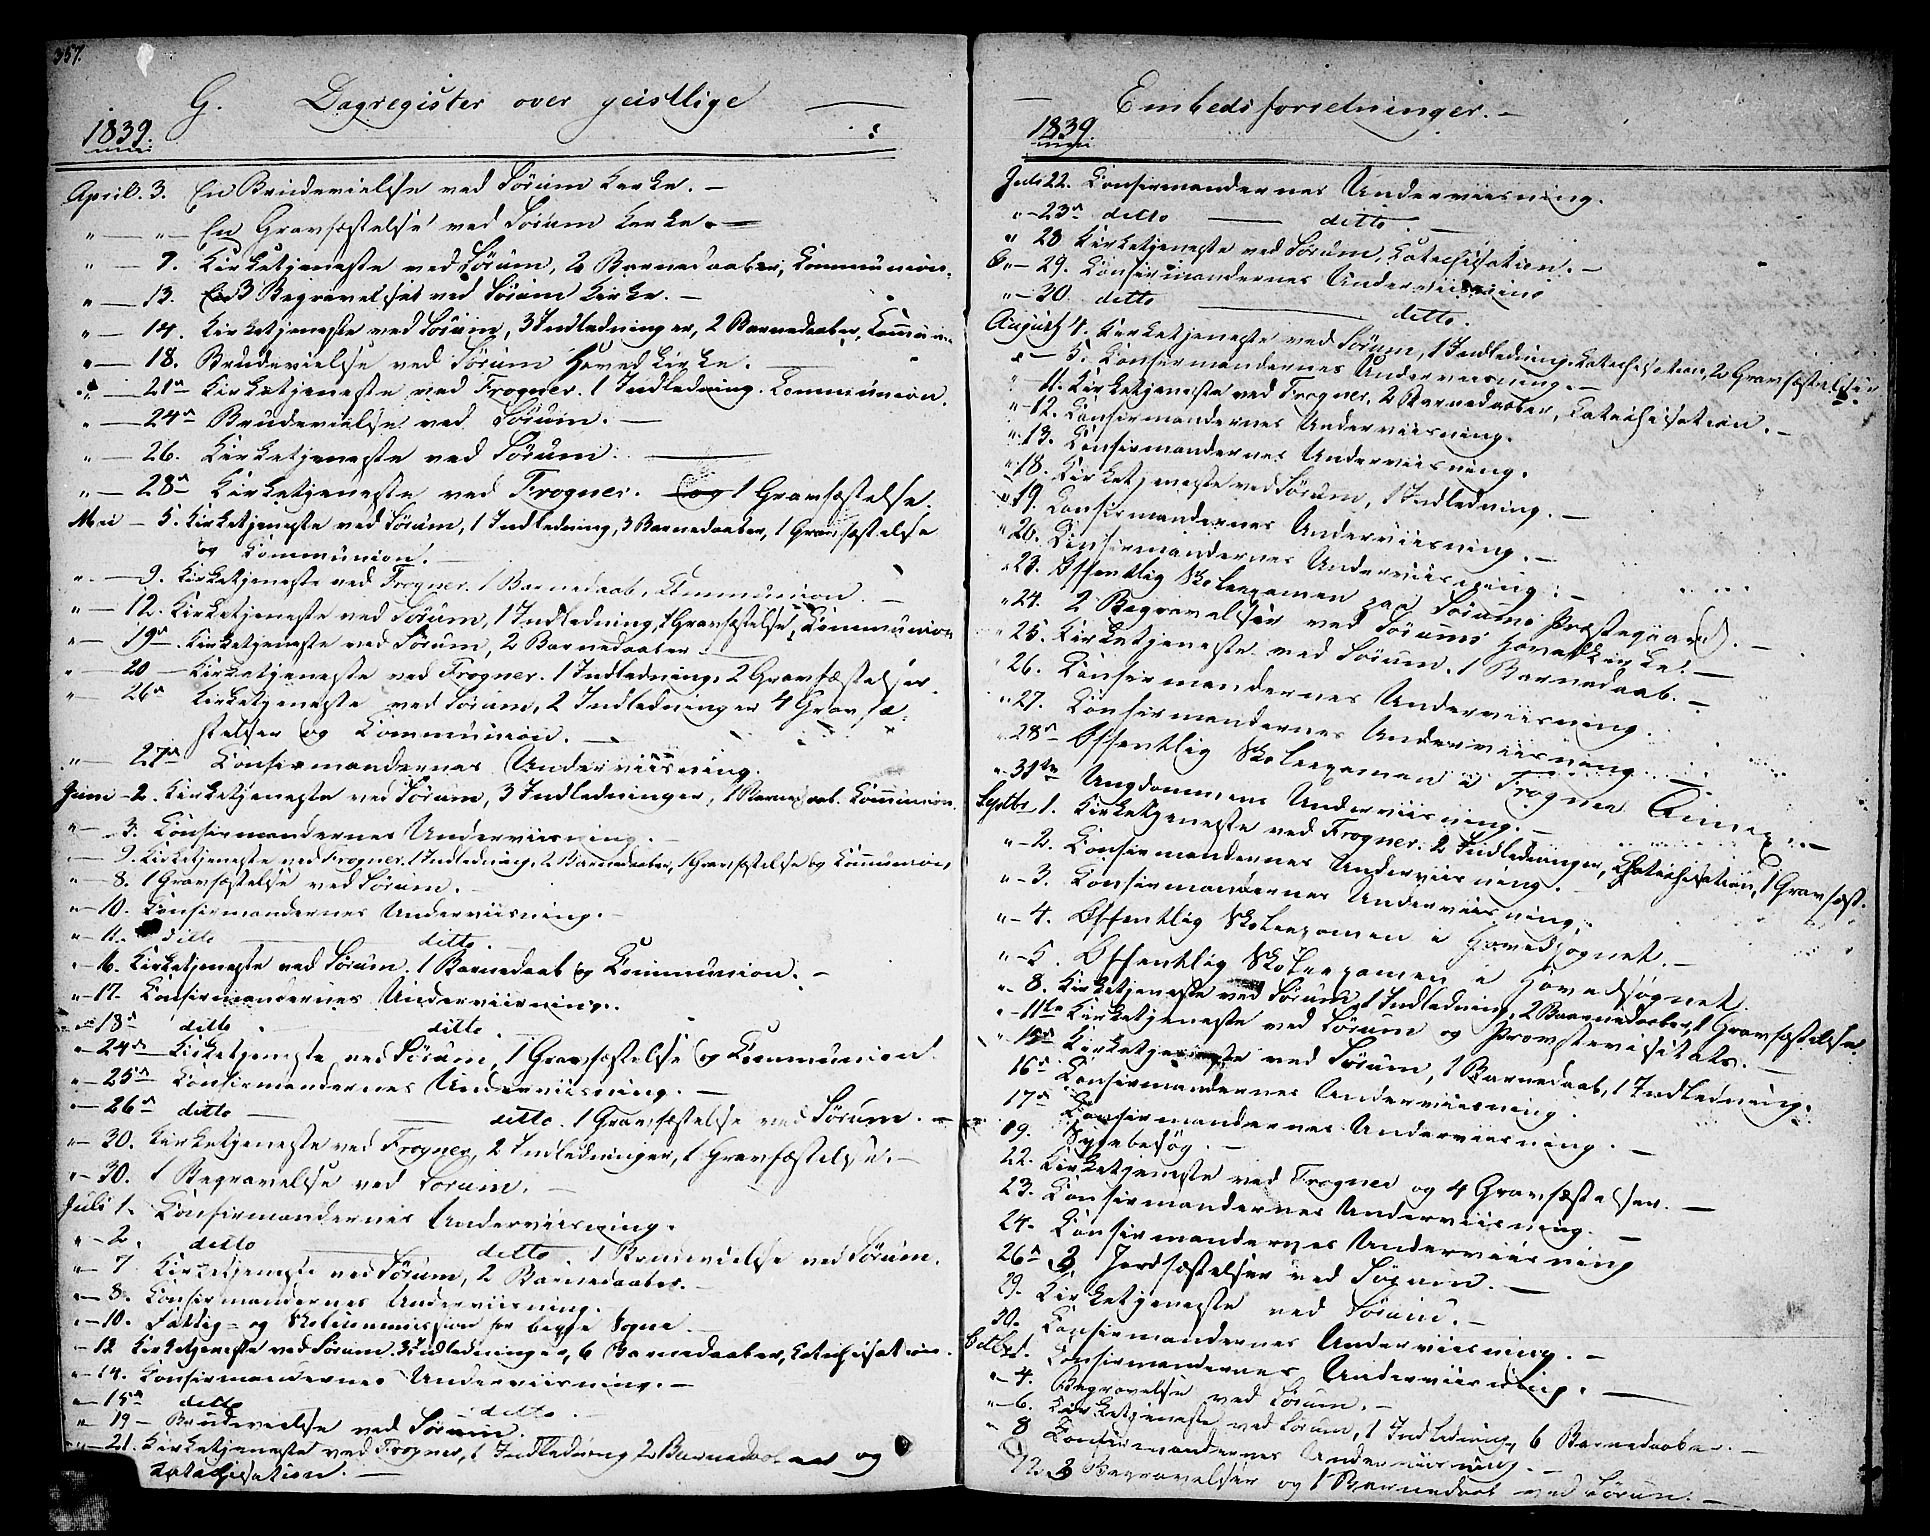 357.
G. Dagregister over geistlige
1839.
April. 3. En Brudevielse ved Sörum Kirke. —
" — " — En Gravfæstelse ved Sörum Kirke. —
" — 7. Kirketjeneste ved Sörum, 2 Barnedaaber, Communion.
" — 13. 3 Begravelser ved Sörum Kirke. —
" — 14. Kirketjeneste ved Sörum, 3 Indledninger, 2 Barnedaaber, Com̄union
" — 18. Brudevielse ved Sörum Hovedkirke. —
" — 21de Kirketjeneste ved Frogner. 1 Indledning. Communion.
" — 24de Brudevielse ved Sörum. —
" — 26. Kirketjeneste ved Sörum. —
" — 28de Kirketjeneste ved Frogner. og 1 Gravfæstelse.
Mai — 5. Kirketjeneste ved Sörum, 1 Indledning, 3 Barnedaaber, 1 Gravfæstelse
og Communion. —
" — 9. Kirketjeneste ved Frogner. 1 Barnedaab, Communion —
" — 12. Kirketjeneste ved Sörum, 1 Indledning, 1 Gravfæstelse, Communion
" — 19de Kirketjeneste ved Sörum, 2 Barnedaaber
" — 20 — Kirketjeneste ved Frogner. 1 Indledning, 2 Gravfæstelser.
" — 26de Kirketjeneste ved Sörum, 2 Indledninger 4 Gravfæ-
stelser og Communion. —
" — 27de Confirmandernes Underviisning.
Juni — 2. Kirketjeneste ved Sörum, 3 Indledninger, 1 Barnedaab. Com̄union.
" — 3. Confirmandernes Underviisning. —
— 9. Kirketjeneste ved Frogner. 1 Indledning, 2 Barnedaaber, 1 Gravfæstelse og Com̄union,
" — 8. 1 Gravfæstelse ved Sörum. —
" — 10. Confirmandernes Underviisning. —
" — 11. ditto — ditto.
" 16. Kirketjeneste ved Sörum. 1 Barnedaab og Communion. —
" — 17. Confirmandernes Underviisning.
" — 18de ditto — ditto.
" — 24de Kirketjeneste ved Sörum, 1 Gravfæstelse og Communion.
" — 25de Confirmandernes Underviisning. —
" — 26de ditto — ditto. 1 Gravfæstelse ved Sörum. —
" — 30. Kirketjeneste ved Frogner, 2 Indledninger, 1 Gravfæstelse. —
" — 30. 1 Begravelse ved Sörum. —
Juli 1. Confirmandernes Underviisning.
" — 2. ditto — ditto 1 Brudevielse ved Sörum.
" — 7 Kirketjeneste ved Sörum, 2 Barnedaaber. —
" — 8. Confirmandernes Underviisning.
" — 10. Fattig- og Skolecommission for begge Sogne. —
— 12 Kirketjeneste ved Sörum. 3 Indledninger, 6 Barnedaaber, Catechisation.
" — 14. Confirmandernes Underviisning. —
" — 15de ditto — ditto. —
" 19 — Brudevielse ved Sörum.
" — 21. Kirketjeneste ved Frogner, 1 Indledning 2 Barnedaaber og
Catachisation. —
— Embedsforretninger. —
1839.
Juli 22. Confirmandernes Underviisning.
" — 23de ditto — ditto. —
" 28 Kirketjeneste ved Sörum, Catechisation. —
" — 29. Confirmandernes Underviisning
" — 30. ditto — ditto.
August 4. Kirketjeneste ved Sörum, 1 Indledning, Catechisation, 2 Gravfæstelser
" — 5. Confirmandernes Underviisning. —
" — 11. Kirketjeneste ved Frogner, 2 Barnedaaber, Catechisation. —
" 12. Confirmandernes Underviisning.
" 13. Confirmandernes Underviisning.
" 18. Kirketjeneste ved Sörum, 1 Indledning. —
" 19. Confirmandernes Underviisning. —
" 20. Confirmandernes Underviisning. —
" 23. Offentlig Skoleexamen paa Sörums Præstegaard. —
" 24. 2 Begravelser ved Sörums Hovedkirke. —
" 25. Kirketjeneste ved Sörum. 1 Barnedaab. —
26. Confirmandernes Underviisning.
" 27. Confirmandernes Underviisning. —
" 28de Offentlig Skoleexamen i Frogner Annex. —
" 31te Ungdommens Underviisning. —
Septbr 1. Kirketjeneste ved Frogner. 2 Indledninger, Chatechisation, 1 Gravfæst.
" — 2. Confirmandernes Underviisning. —
" — 3. Confirmandernes Underviisning.
" — 4. Offentlig Skoleexamen i Hovedsognet. —
" — 5. Offentlig Skoleexamen i Hovedsognet.
" 8. Kirketjeneste ved Sörum, 1 Indledning, 2 Barnedaaber, 1 Gravfæstelse.
" 11te Kirketjeneste ved Sörum og Provstevisitats. —
" 15de Kirketjeneste ved Sörum, 1 Barnedaab, 1 Indledning.
16de Confirmandernes Underviisning.
17de Confirmandernes Underviisning. —
19. Sygebesög. —
22. Kirketjeneste ved Frogner og 4 Gravfæstelser. —
23. Confirmandernes Underviisning. —
24. Confirmandernes Underviisning
26de 3 Jordfæstelser ved Sörum. —
29. Kirketjeneste ved Sörum. —
30. Confirmandernes Underviisning. —
Octbr 1. Confirmandernes Underviisning. —
" 4. Begravelse ved Sörum. —
" — 6. Kirketjeneste ved Sörum, 1 Indledning, 6 Barnedaaber. —
" 8 Confirmandernes Underviisning. —
12. 3 Begravelser og 1 Barnedaab ved Sörum. —